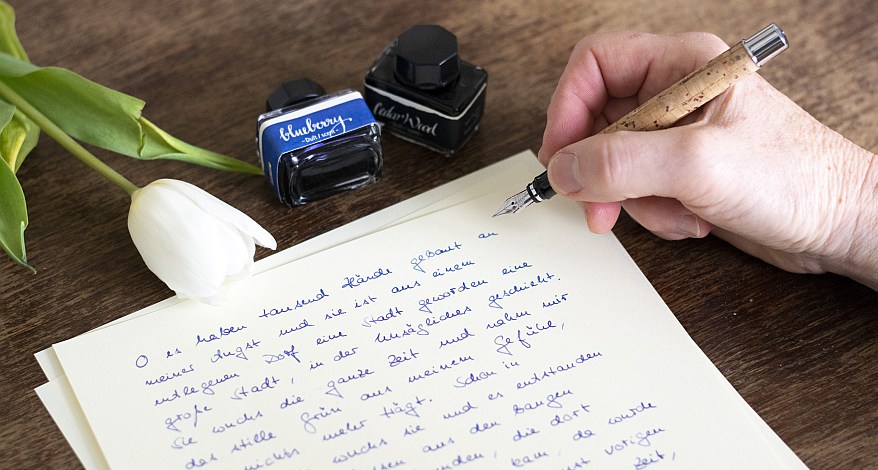 blueberry
- Duft / scent -
Cedar Wood
O es haben tausend Hände gebaut an
meiner Angst und sie ist aus einem
entlegenen Dorf eine Stadt geworden eine
große Stadt, in der Unsägliches geschieht.
Sie wuchs die ganze Zeit und nahm mir
das stille Grün aus meinem Gefühle,
nichts mehr trägt. Schon in
wuchs sie und es entstanden
aus den bangen
die dort
kam, da wurde
vorigen
Zeit,